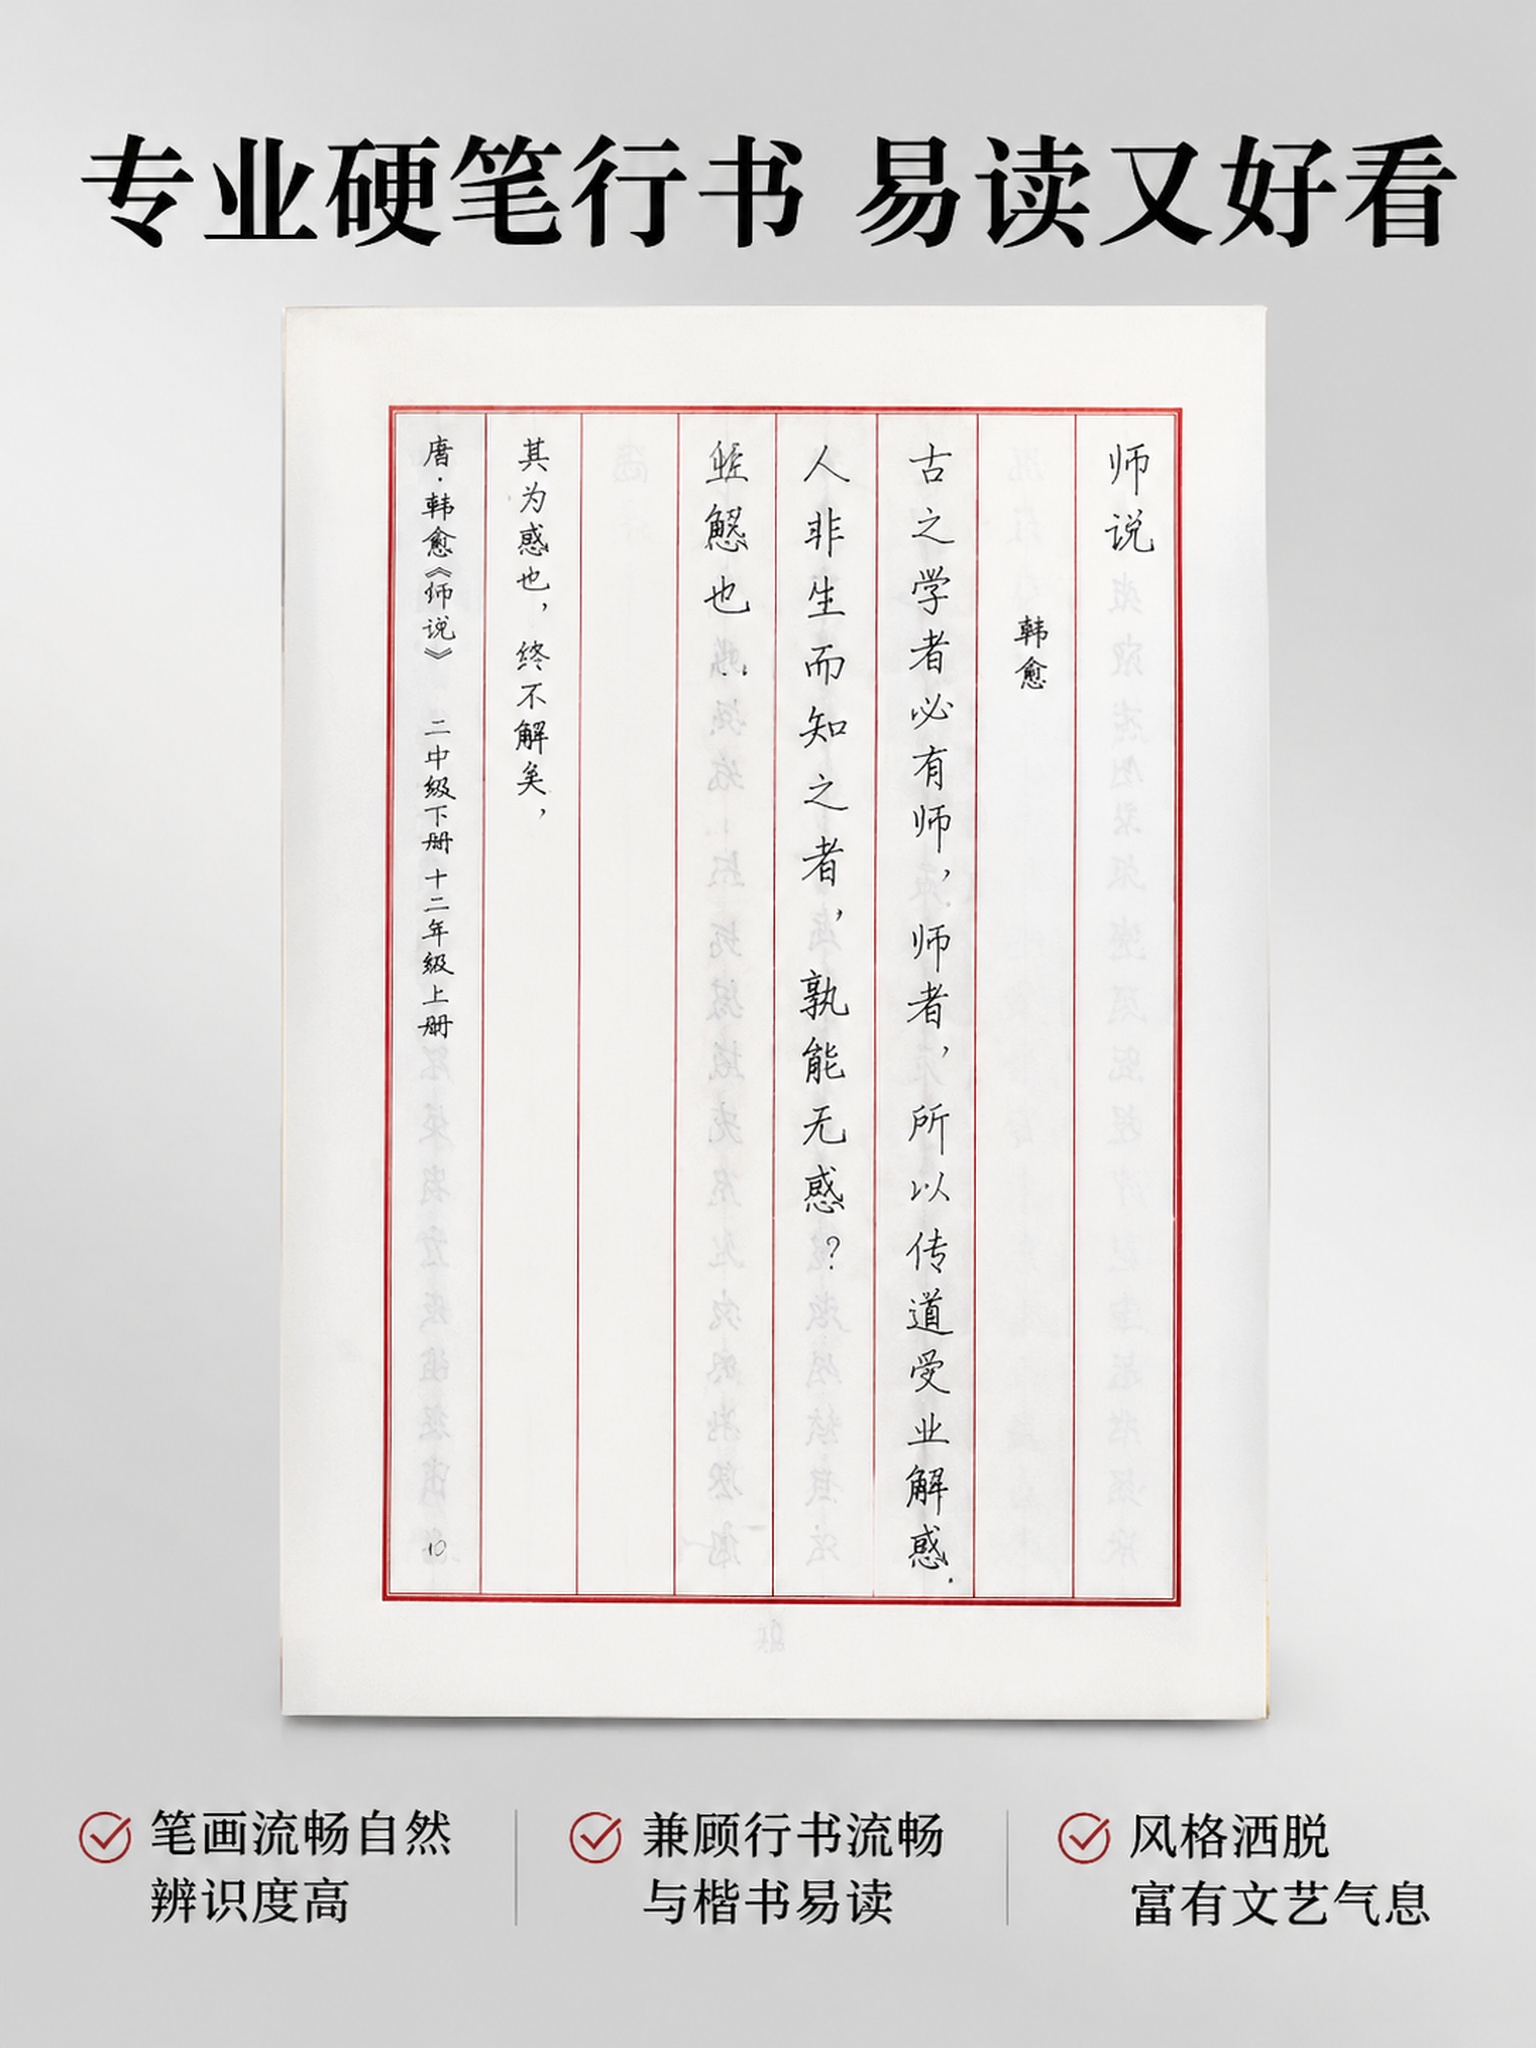 专业硬笔行书 易读又好看
师说
韩愈
古之学者必有师，师者，所以传道受业解惑.
人非生而知之者，孰能无惑？
也
其为惑也，终不解矣，
唐·韩愈《师说》 二中级下册十二年级上册
10
笔画流畅自然
辨识度高
兼顾行书流畅
与楷书易读
风格洒脱
富有文艺气息